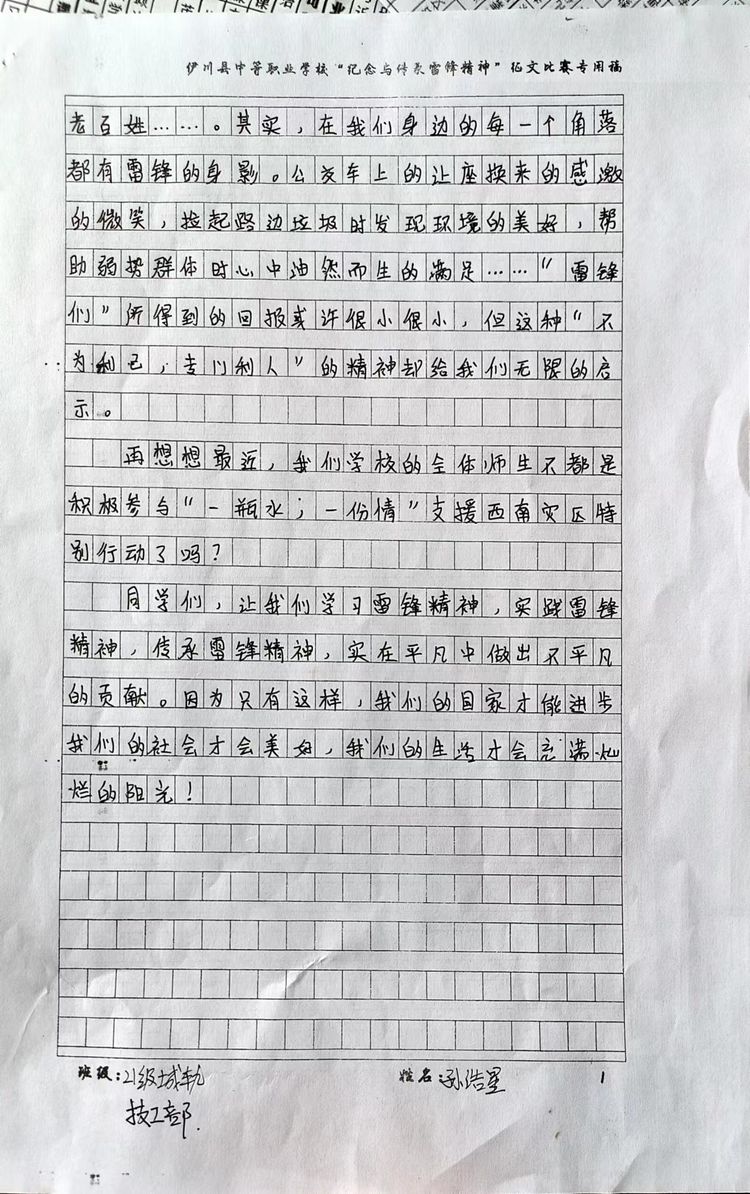 伊川县中等职业学校“纪念与传承雷锋精神”征文比赛专用稿
老百姓……。其实，在我们身边的每一个角落
都有雷锋的身影。公交车上的让座换来的感激
的微笑，捡起路边垃圾时发现环境的美好，帮
助弱势群体时心中油然而生的满足……“雷锋
们”所得到的回报或许很小很小，但这种“不
为利己，专门利人”的精神却给我们无限的启
示。
再想想最近，我们学校的全体师生不都是
积极参与“一瓶水；一份情”支援西南灾区特
别行动了吗？
同学们，让我们学习雷锋精神，实践雷锋
精神，传承雷锋精神，实在平凡中做出不平凡
的贡献。因为只有这样，我们的国家才能进步
我们的社会才会美好，我们的生活才会充满灿
烂的阳光！
班级：21级城轨
姓名：孙浩星
1
技工部.